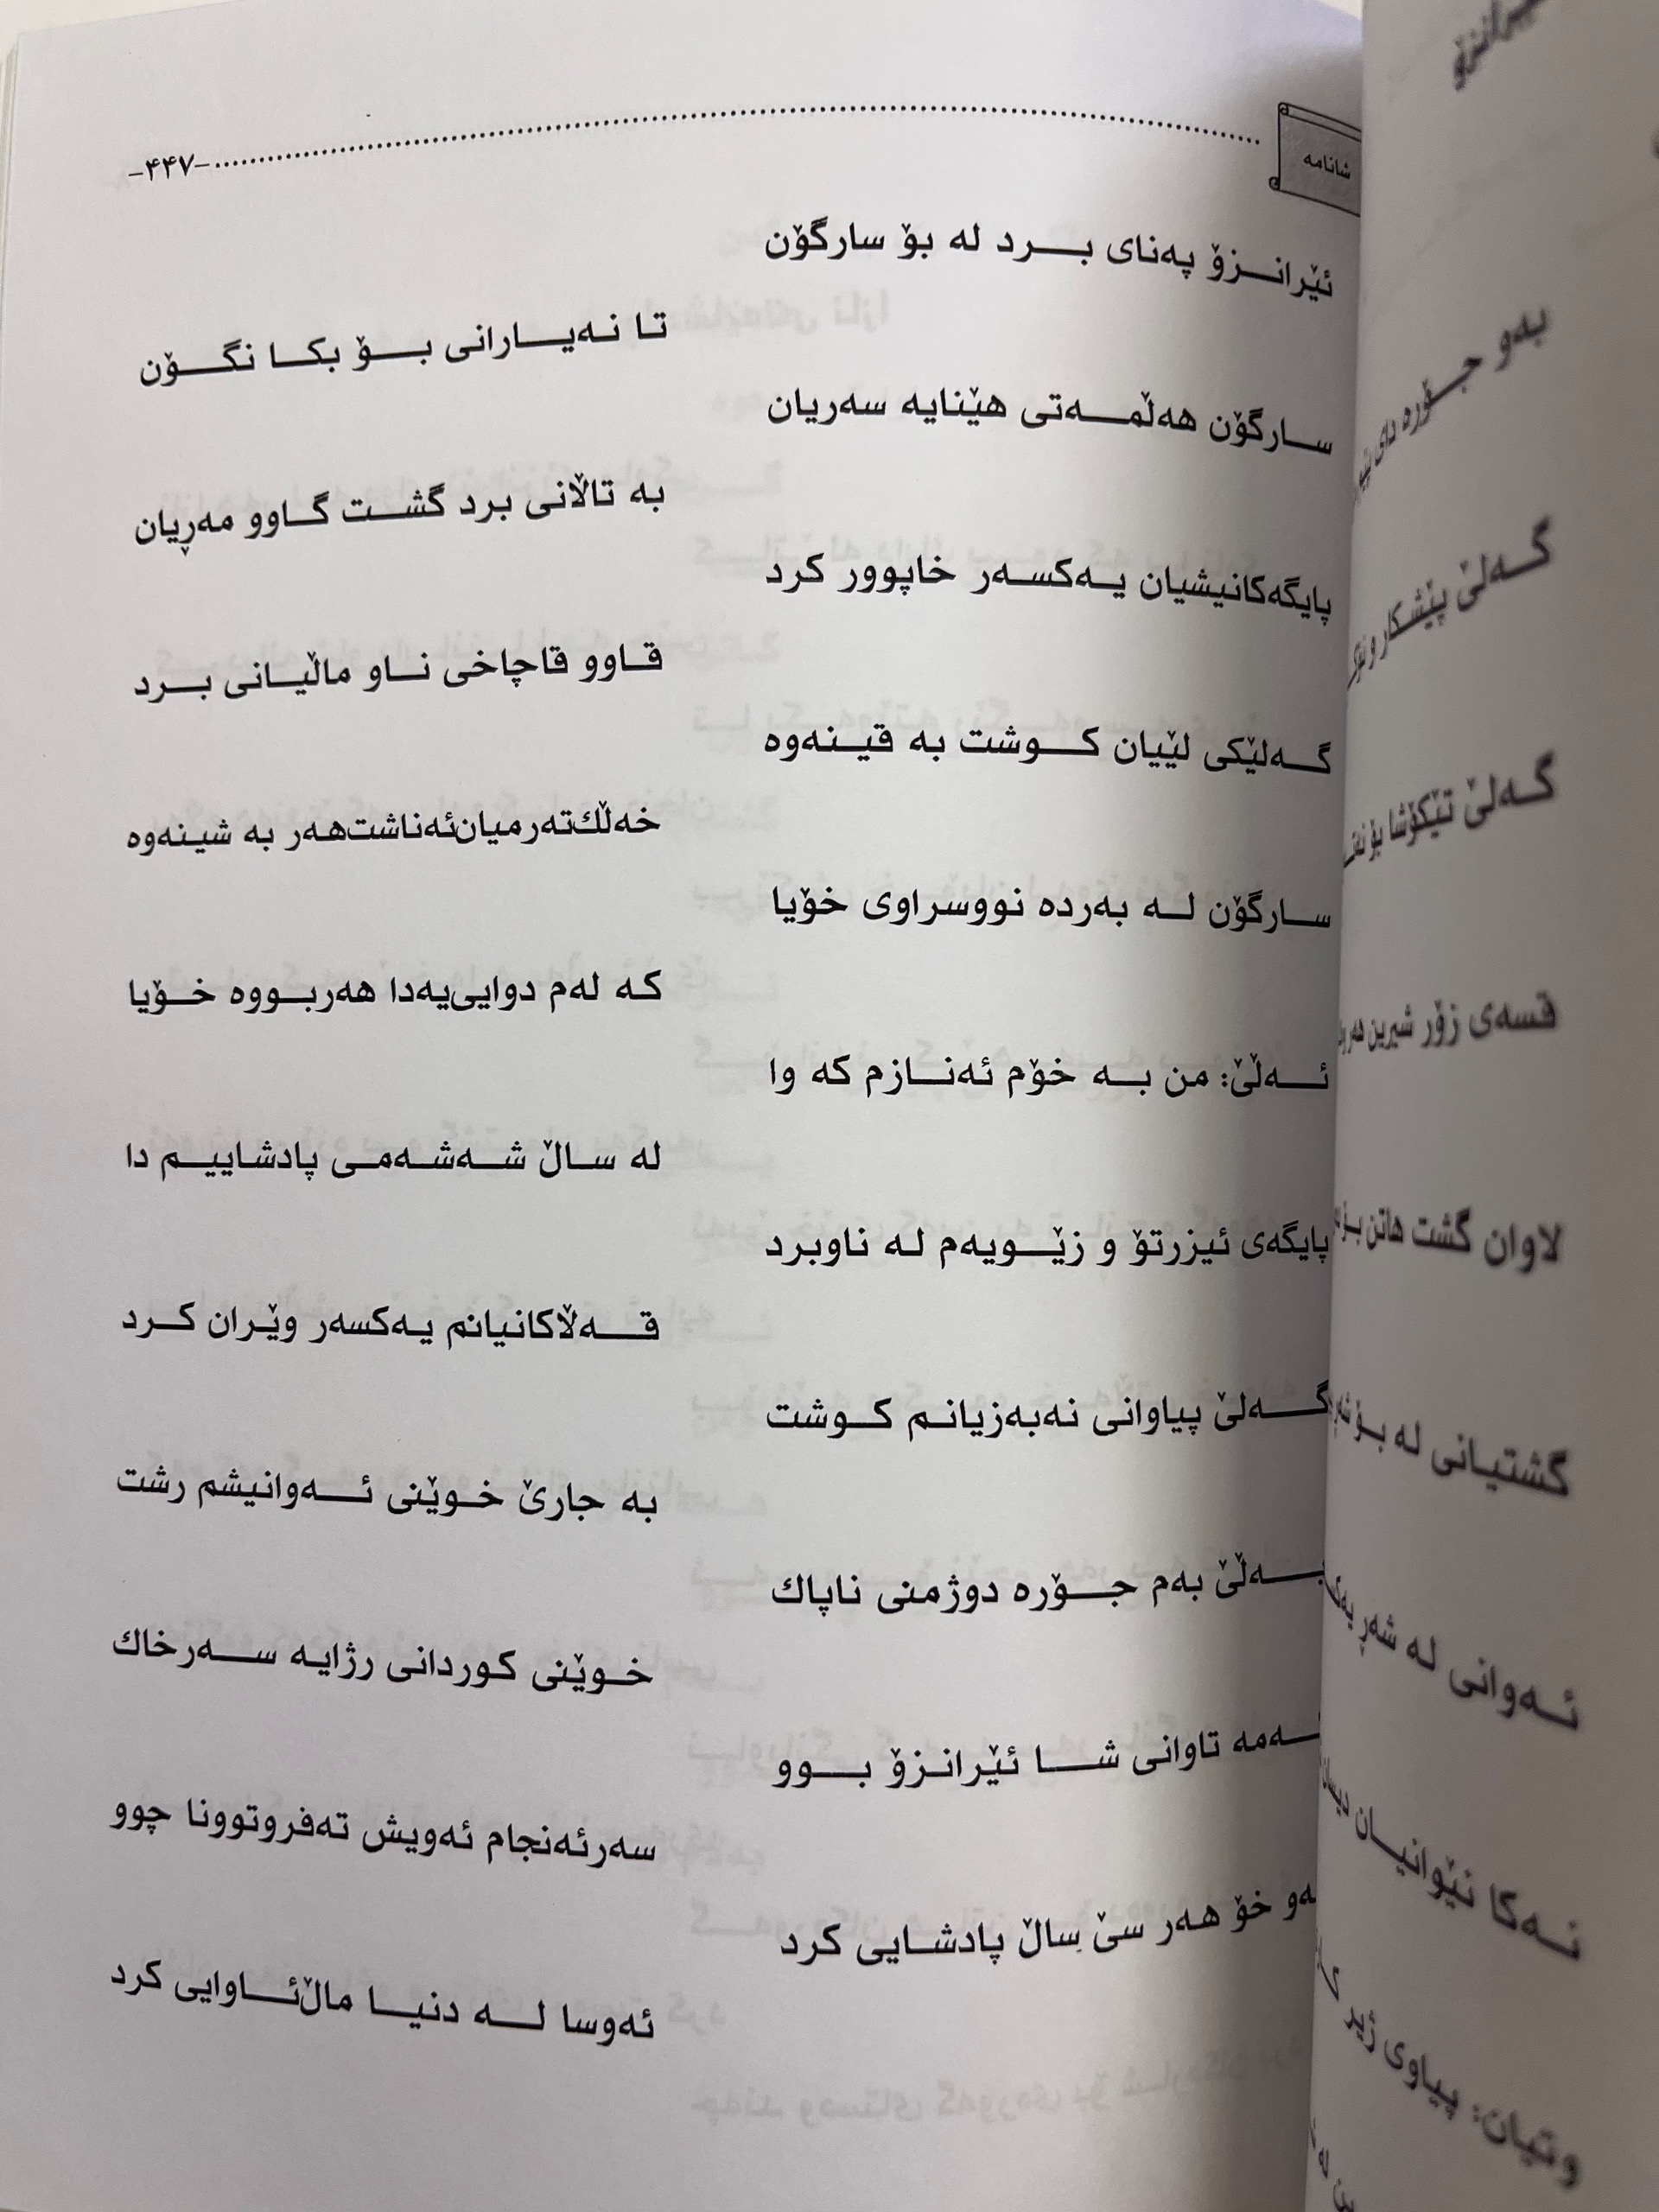 شانامه
-۴۴۷-
ئێرانزۆ پەنای برد لە بۆ سارگۆن
تا نەیارانی بۆ بکا نگۆن
سارگۆن هەڵمەتی هێنایە سەریان
بە تاڵانی برد گشت گاوو مەڕیان
پایگەکانیشیان یەکسەر خاپوور کرد
قاوو قاچاخی ناو ماڵیانی برد
گەلێکی لێیان کوشت بە قینەوە
خەڵك تەرمیان ئەناشت هەر بە شینەوە
سارگۆن لە بەردە نووسراوی خۆیا
کە لەم دوایی‌یەدا هەربووە خۆیا
ئەڵێ: من بە خۆم ئەنازم کە وا
لە ساڵ شەشەمی پادشاییم دا
پایگەی ئیزرتۆ و زێویەم لە ناوبرد
قەڵاکانیانم یەکسەر وێران کرد
گەلێ پیاوانی نەبەزیانم کوشت
بە جارێ خوێنی ئەوانیشم رشت
بەڵێ بەم جۆرە دوژمنی ناپاك
خوێنی کوردانی رژایە سەرخاك
تاوانی شا ئێرانزۆ بوو
سەرئەنجام ئەویش تەفروتوونا چوو
خۆ هەر سێ ساڵ پادشایی کرد
ئەوسا لە دنیا ماڵئاوایی کرد
ئێرانزۆ
بەو جۆرە دای
گەلێ پێشکار
گەلێ تێکۆشا بۆ
قسەی زۆر شیرین
لاوان گشت هاتن
گشتیانی لە بۆ
ئەوانی لە شەڕ
نەکا نێوانیان
وتیان: پیاوی ژیر